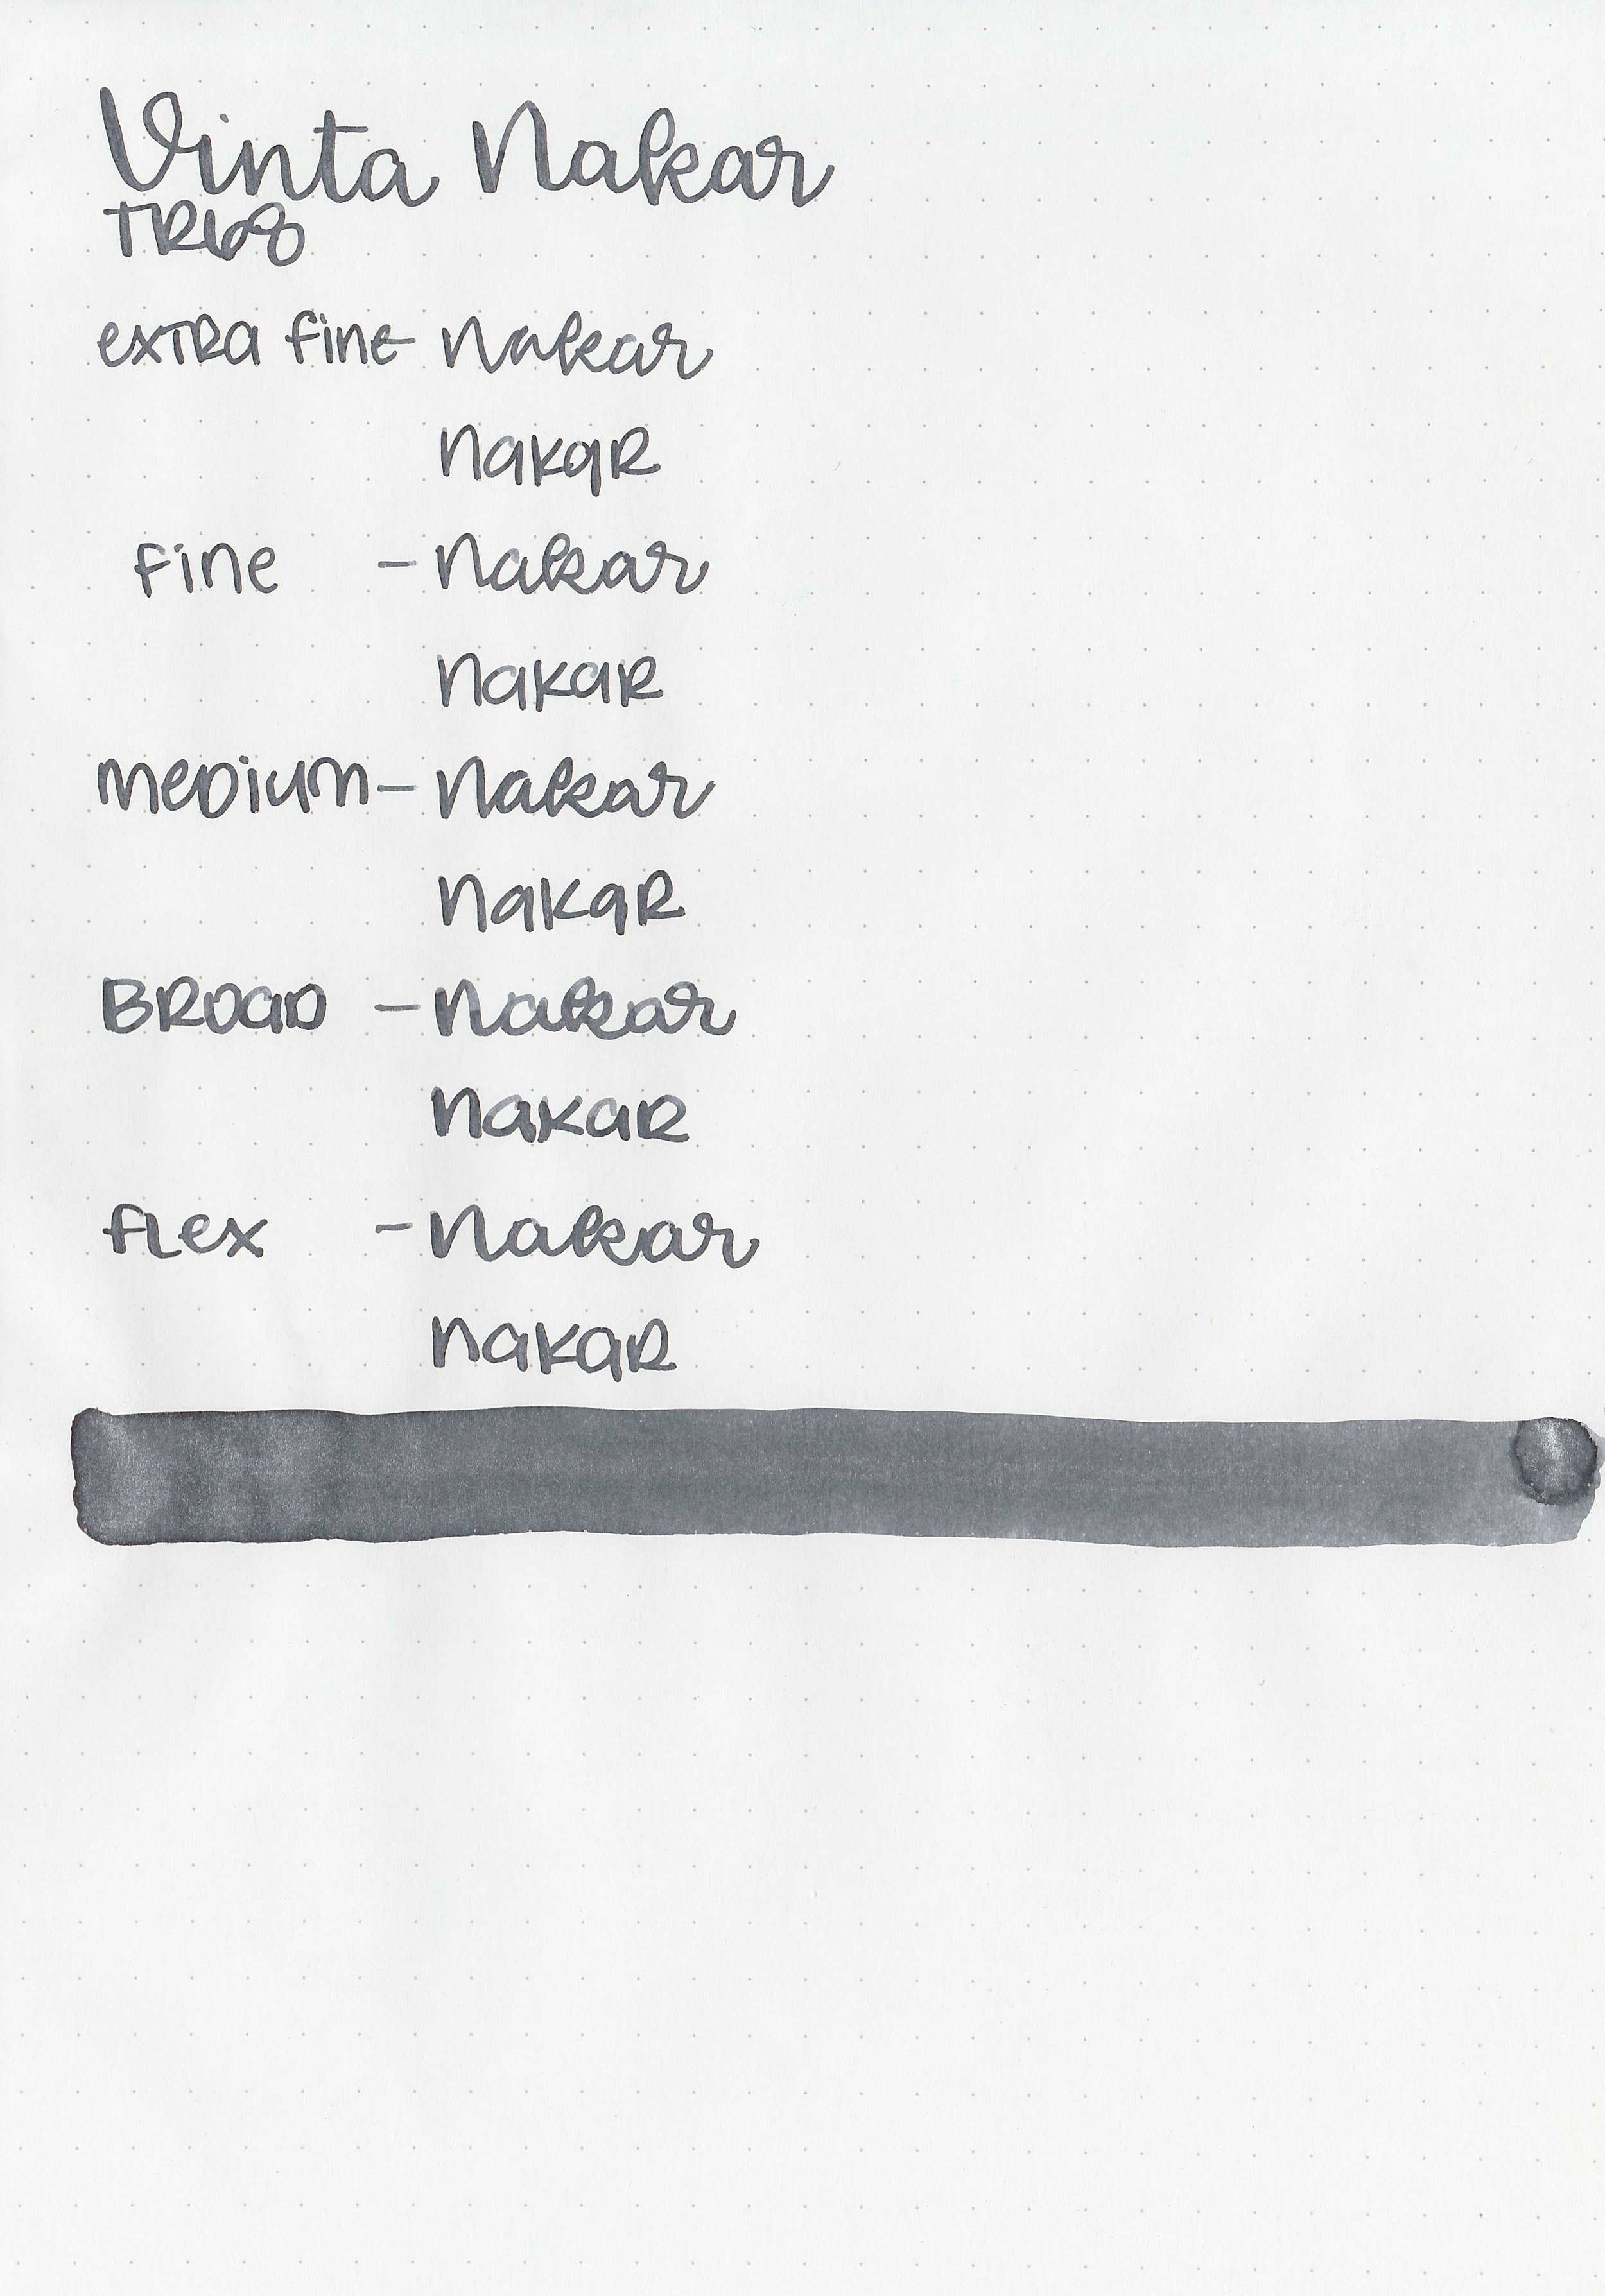 Vinta Nakar
TR68
extra fine - Nakar
nakar
fine - Nakar
nakar
medium - Nakar
nakar
Broad - Nakar
nakar
flex - Nakar
nakar